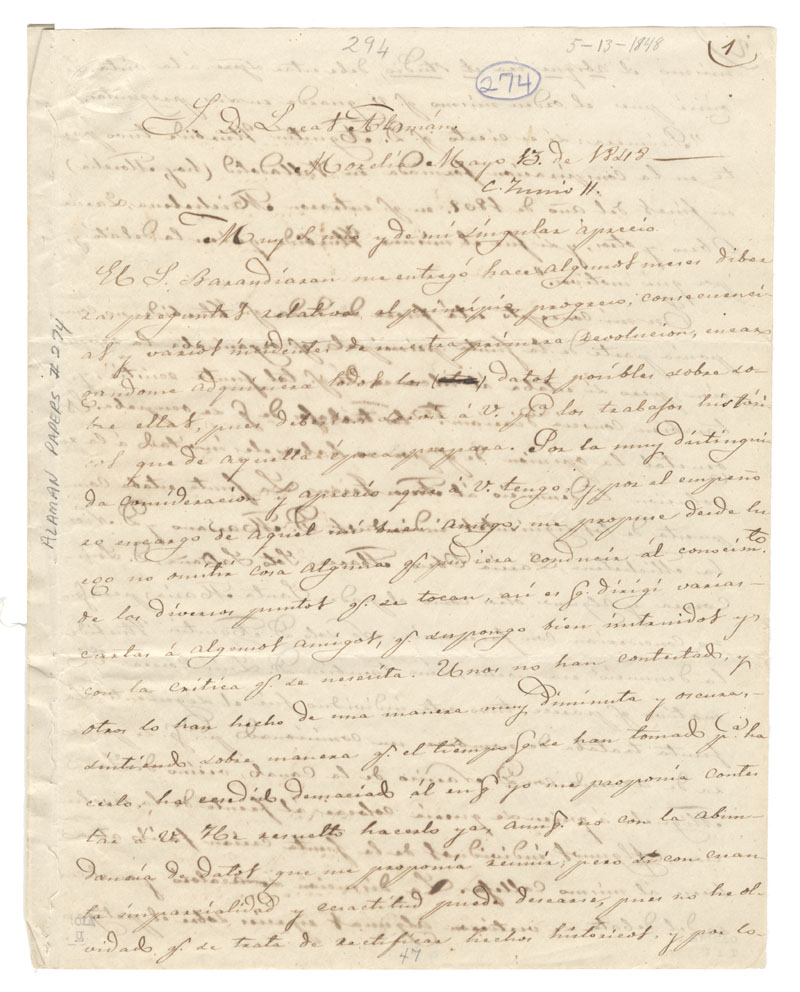 294
5-13-1848
1
274
S. D. Lucas Alamán.
Morelia Mayo 13. de 1848
C. Junio 11.
Muy S. mio y de mi singular aprecio.
El S. Barandiaran me entregó hace algunos meses diber
sas preguntas relativas al principio, progreso, consecuenci-
as y varios incidentes de nuestra primera revolucion, encar
gandome adquiriera todos los datos posibles sobre so-
bre ellas, pues debian servir a V. pª los trabajos históri-
cos que de aquella época prepara. Por la muy distingui
da consideracion y aprecio que á V. tengo; y por el empeño
so encargo de aquel mi buen amigo, me propuse desde lu
ego no omitir cosa alguna q. pudiera conducir ál conocimto.
de los diversos puntos q. se tocan, así es q. dirigí varias
cartas á algunos amigos, q. supongo bien instruidos y
con la crítica q. se necesita. Unos no han contestado, y
otros lo han hecho de una manera muy diminuta y oscura,
sintiendo sobre manera q. el tiempo q. se han tomado pª. ha
cerlo, ha ecsedido demaciado al en q. yo me proponia contes
tar á V. He resuelto hacerlo ya, aunq. no con la abun-
dancia de datos que me proponia reunir, pero si con cuan
ta imparcialidad y ecsactitud puede desearse, pues no he ol-
vidado q. se trata de rectificar hechos históricos, y por lo-
47
ALAMAN PAPERS #274